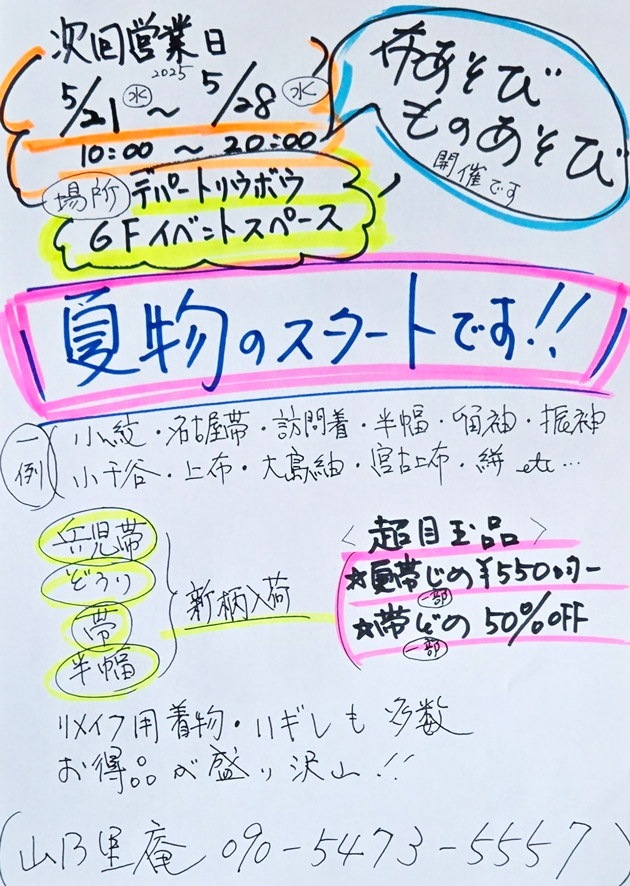 次回営業日
2025
5/21 水 〜 5/28 水
10:00 〜 20:00
場所 デパートリウボウ
6Fイベントスペース
布あそび
ものあそび
開催です
夏物のスタートです!!
一例
小紋・名古屋帯・訪問着・半幅・留袖・振袖
小千谷・上布・大島紬・宮古上布・絣 etc…
兵児帯
ぞうり
帯
半幅
新柄入荷
〈超目玉品〉
☆夏帯じめ ¥550円ー
一部
☆帯じめ 50%OFF
一部
リメイク用着物・ハギレも多数
お得品が盛り沢山!!
(山乃里庵 090-5473-5557)